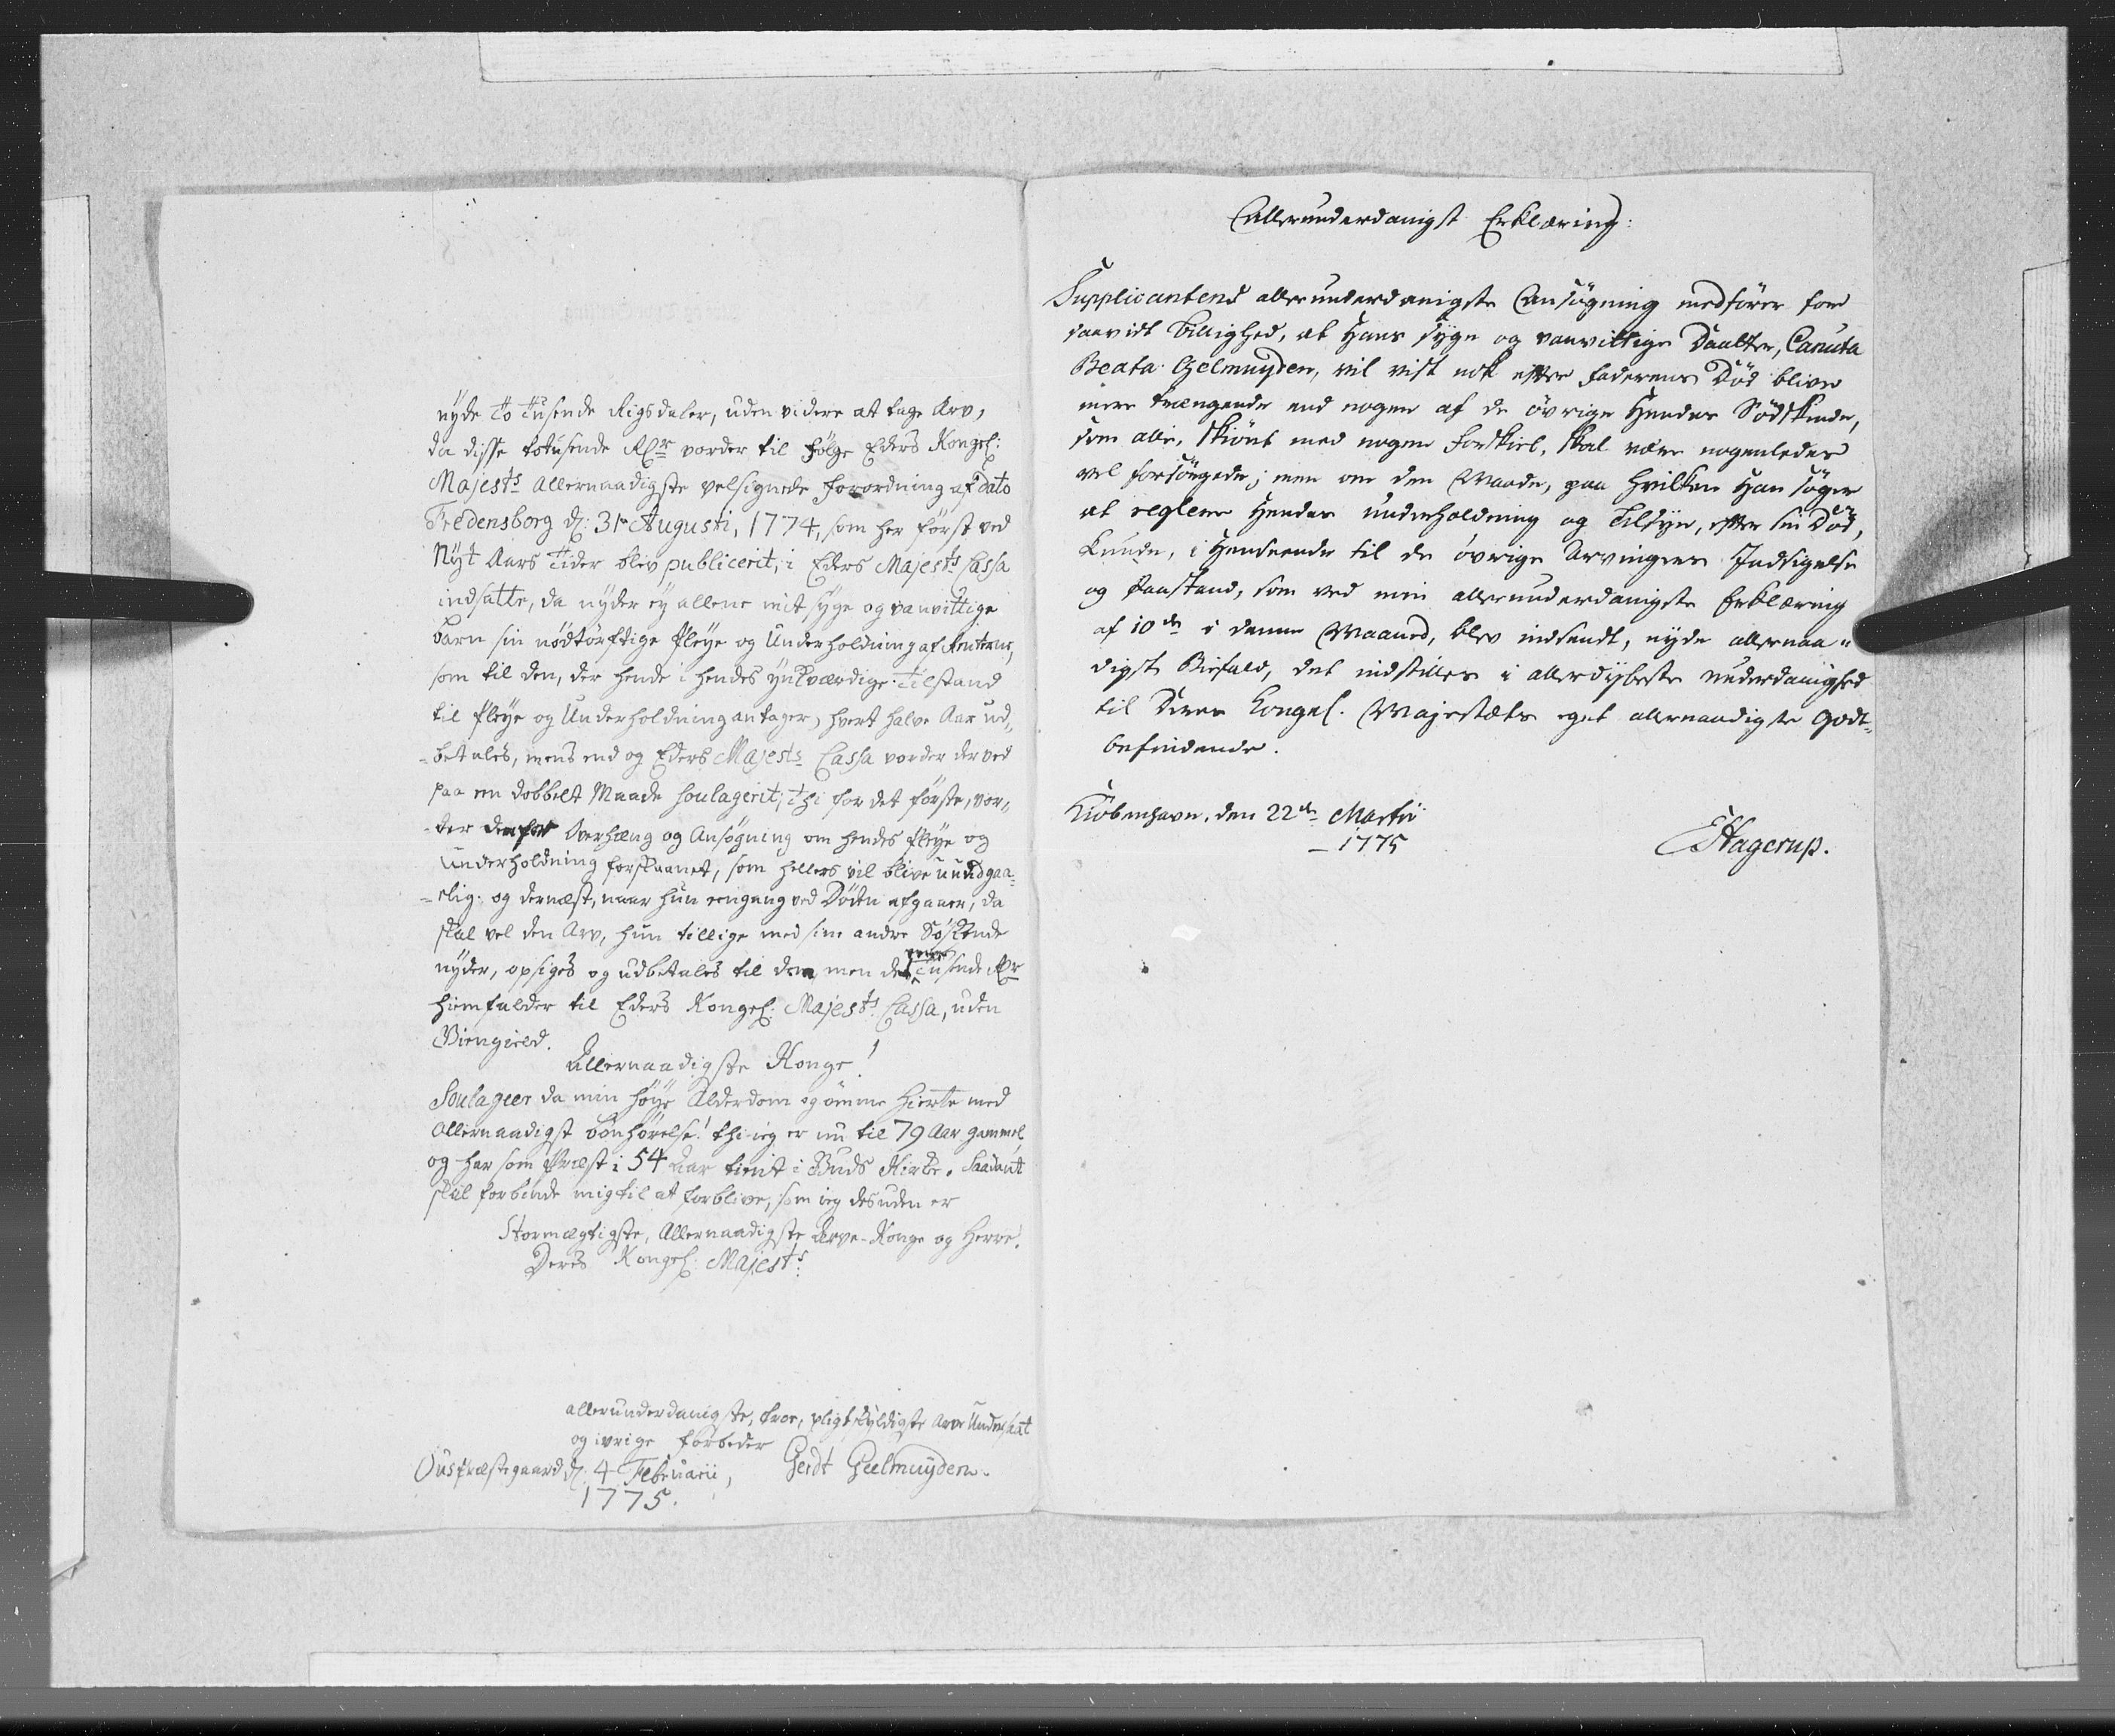 nyde to tusende Rigsdaler, uden videre at tage Arv,
da disse totusende Rdr vorder til følge Eders Kongel:
Majests Allernaadigste velsignede forordning af Dato
Fredensborg d: 31te Augusti, 1774, som her først ved
Nyt Aars Tider blev publicerit, i Eders Majests Cassa
indsatte, da nyder ey allene mit syge og vanvittige
barn sin nødtørftige pleye og Underholdning af Renterne,
som til den, der hende i hendes ynkværdige Tilstand
til pleye og Underholdning antager, hvert halve Aar ud„
-betales, mens end og Eders Majests Cassa vorder derved
paa en dobbelt Maade soulagerit; thi for det første, vor„
-der Overhæng og Ansøgning om hendes pleye og
Underholdning forskaanet, som hellers vil blive uundgaa„
-elig. og dernæst, naar hun eengang ved Døden afgaaer, da
skal vel den Arv, hun tillige med sine andre Søskende
nyder, opsiges og udbetales til dem men de Tusende Rdr
hiemfalder til Eders Kongel: Majests Cassa, uden
Giengield.
Allernaadigste Konge!
Soulageer da min høye Alderdom og ømme Hierte med
Allernaadigst bønhørelse! thi ieg er nu til 79 Aar gammel
og har som Præst i 54 Aar tient i Guds Kirke. Saadant
skal forbinde mig til at forblive, som ieg desuden er
Stormægtigste, Allernaadigste Arve-Konge og Herre!
Deres Kongel: Majests:
allerunderdanigste, troe, pligtskyldigste Arve Undersaat
og ivrige forbeder
Ous præstegaard d: 4 Februarii, Gerdt Geelmuyden.
1775.
Allerunderdanigst Erklæring:
Supplicantens allerunderdanigste Ansøgning medfører for
saavidt Billighed, at Hans syge og vanvittige Daatter, Canuta
Beata Gelmuyden, vil vist nok efter Faderens Død blive
mere trængende end nogen af de øvrige Hendes Sødskende,
som alle, skiønt med nogen Forskiel, skal være nogenledes
vel forsørgede; men om den Maade, paa hvilken Han søger
at reglere Hendes underholdning og Tilsyn, efter sin Død,
kunde, i Henseende til de øvrige Arvingers Indsigelse
og Paastand, som ved min allerunderdanigste Erklæring
af 10de i denne Maaned, blev indsendt, nyde allernaa„
digst Bifald, det indstilles i allerdybeste underdanighed
til Deres Kongel. Majestæts eget allernaadigste Godt„
befindende.
Kiøbenhavn, den 22de Martii
1775
EHagerup.